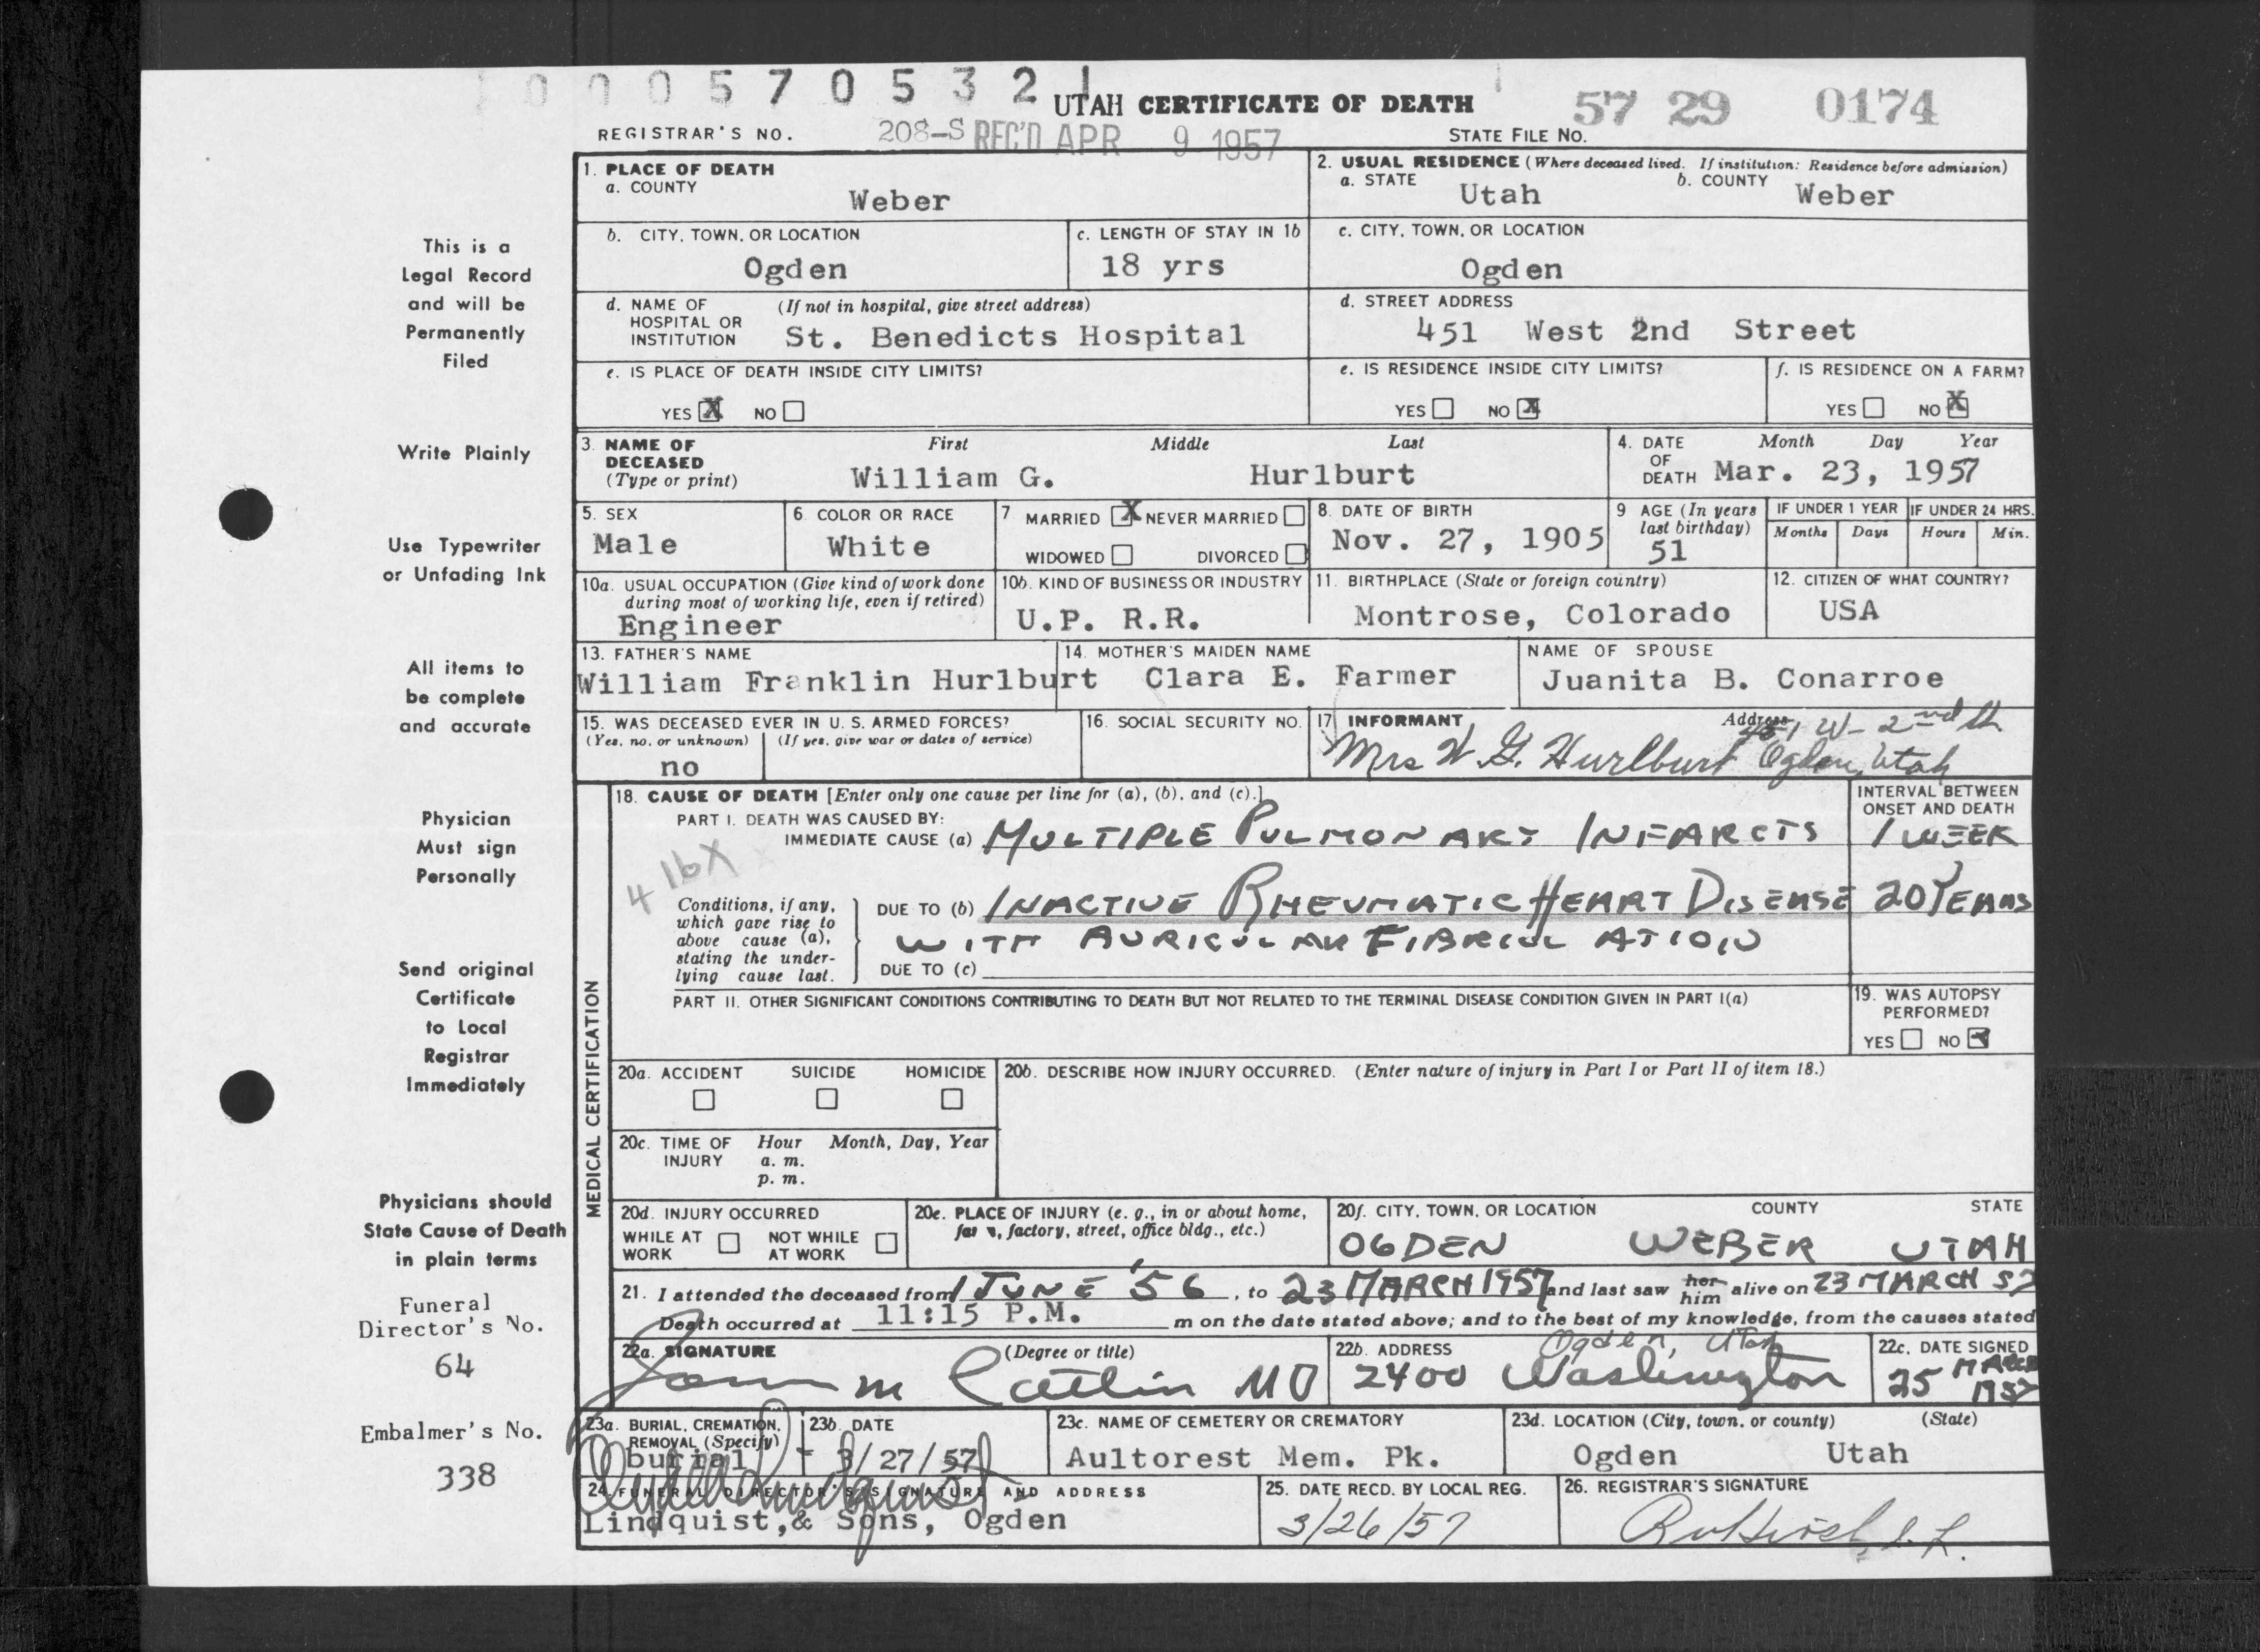 1 0 0 0 5 7 0 5 3 2 1
UTAH CERTIFICATE OF DEATH 57 29 0174
REGISTRAR'S NO. 208-S REC'D APR 9 1957 STATE FILE NO.
1. PLACE OF DEATH
a. COUNTY
Weber
2. USUAL RESIDENCE (Where deceased lived. If institution: Residence before admission)
a. STATE Utah b. COUNTY Weber
b. CITY, TOWN, OR LOCATION
Ogden
c. LENGTH OF STAY IN 1b
18 yrs
c. CITY, TOWN, OR LOCATION
Ogden
d. NAME OF HOSPITAL OR INSTITUTION (If not in hospital, give street address)
St. Benedicts Hospital
d. STREET ADDRESS
451 West 2nd Street
e. IS PLACE OF DEATH INSIDE CITY LIMITS?
YES X NO
e. IS RESIDENCE INSIDE CITY LIMITS?
YES NO X
f. IS RESIDENCE ON A FARM?
YES NO X
3. NAME OF DECEASED (Type or print)
First Middle Last
William G. Hurlburt
4. DATE OF DEATH Month Day Year
Mar. 23, 1957
5. SEX
Male
6. COLOR OR RACE
White
7 MARRIED X NEVER MARRIED
WIDOWED DIVORCED
8. DATE OF BIRTH
Nov. 27, 1905
9 AGE (In years last birthday)
51
IF UNDER 1 YEAR
Months Days
IF UNDER 24 HRS.
Hours Min.
10a. USUAL OCCUPATION (Give kind of work done during most of working life, even if retired)
Engineer
10b. KIND OF BUSINESS OR INDUSTRY
U.P. R.R.
11. BIRTHPLACE (State or foreign country)
Montrose, Colorado
12. CITIZEN OF WHAT COUNTRY?
USA
13. FATHER'S NAME
William Franklin Hurlburt
14. MOTHER'S MAIDEN NAME
Clara E. Farmer
NAME OF SPOUSE
Juanita B. Conarroe
15. WAS DECEASED EVER IN U. S. ARMED FORCES?
(Yes, no, or unknown) (If yes, give war or dates of service)
no
16. SOCIAL SECURITY NO.
17 INFORMANT Address
Mrs W. G. Hurlburt 451 W- 2nd
Ogden, Utah
MEDICAL CERTIFICATION
18. CAUSE OF DEATH [Enter only one cause per line for (a), (b), and (c).]
INTERVAL BETWEEN ONSET AND DEATH
PART I. DEATH WAS CAUSED BY:
IMMEDIATE CAUSE (a) MULTIPLE PULMONARY INFARCTS 1 WEEK
416X
Conditions, if any, which gave rise to above cause (a), stating the underlying cause last.
DUE TO (b) INACTIVE RHEUMATIC HEART DISEASE 20 YEARS
WITH AURICULAR FIBRILLATION
DUE TO (c)
PART II. OTHER SIGNIFICANT CONDITIONS CONTRIBUTING TO DEATH BUT NOT RELATED TO THE TERMINAL DISEASE CONDITION GIVEN IN PART I(a)
19. WAS AUTOPSY PERFORMED?
YES NO
20a. ACCIDENT SUICIDE HOMICIDE
20b. DESCRIBE HOW INJURY OCCURRED. (Enter nature of injury in Part I or Part II of item 18.)
20c. TIME OF INJURY Hour Month, Day, Year
a. m.
p. m.
20d. INJURY OCCURRED
WHILE AT WORK NOT WHILE AT WORK
20e. PLACE OF INJURY (e. g., in or about home, farm, factory, street, office bldg., etc.)
20f. CITY, TOWN, OR LOCATION COUNTY STATE
OGDEN WEBER UTAH
21. I attended the deceased from 1 JUNE '56, to 23 MARCH 1957 and last saw her him alive on 23 MARCH 57
Death occurred at 11:15 P.M. m on the date stated above; and to the best of my knowledge, from the causes stated
22a. SIGNATURE (Degree or title)
m Catlin MD
22b. ADDRESS Ogden, Utah
2400 Washington
22c. DATE SIGNED
25 MARCH 1957
23a. BURIAL, CREMATION, REMOVAL (Specify)
burial
23b. DATE
3/27/57
23c. NAME OF CEMETERY OR CREMATORY
Aultorest Mem. Pk.
23d. LOCATION (City, town, or county) (State)
Ogden Utah
24. FUNERAL DIRECTOR'S SIGNATURE AND ADDRESS
Lindquist,& Sons, Ogden
25. DATE RECD. BY LOCAL REG.
3/26/57
26. REGISTRAR'S SIGNATURE
This is a
Legal Record
and will be
Permanently
Filed
Write Plainly
Use Typewriter
or Unfading Ink
All items to
be complete
and accurate
Physician
Must sign
Personally
Send original
Certificate
to Local
Registrar
Immediately
Physicians should
State Cause of Death
in plain terms
Funeral
Director's No.
64
Embalmer's No.
338